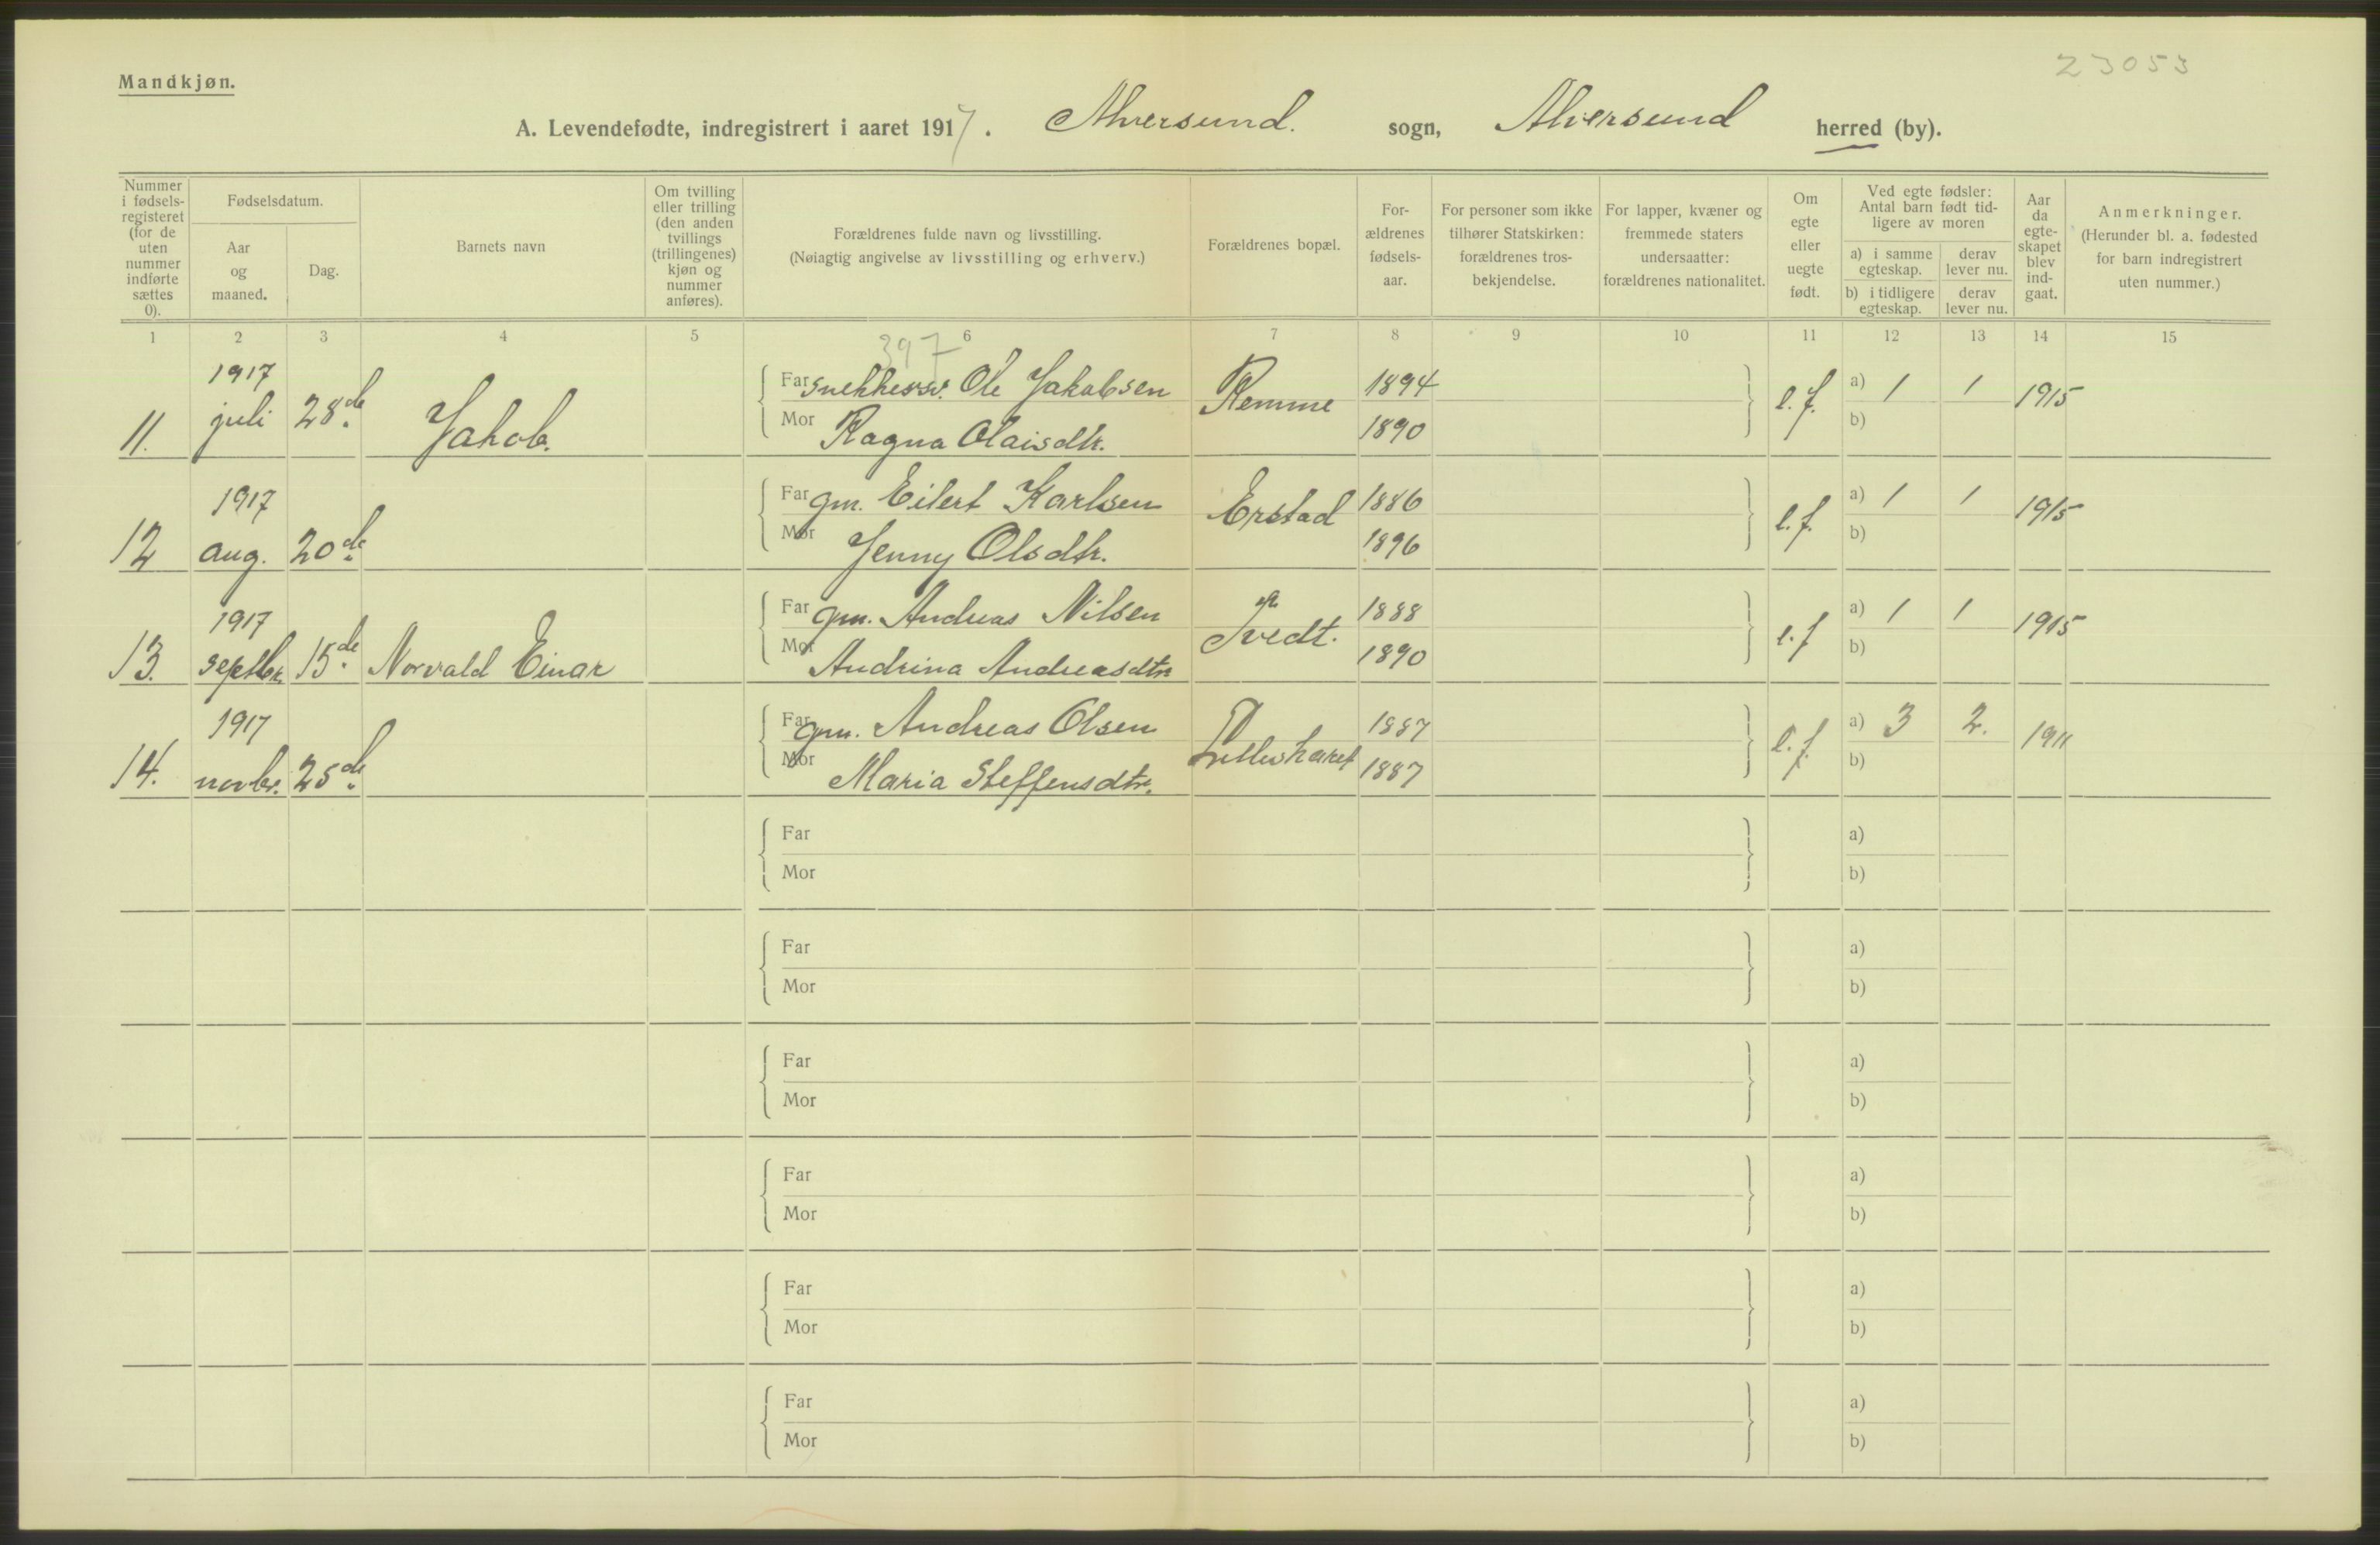 23053
Mandkjøn.
A. Levendefødte, indregistrert i aaret 1917. Alversund. sogn, Alversund herred (by).
Nummer i fødsels-registeret (for de uten nummer indførte sættes 0).
Fødselsdatum.
Aar og maaned.
Dag.
Barnets navn
Om tvilling eller trilling (den anden tvillings (trillingenes) kjøn og nummer anføres).
Forældrenes fulde navn og livsstilling.
(Nøiagtig angivelse av livsstilling og erhverv.)
Forældrenes bopæl.
For-ældrenes fødsels-aar.
For personer som ikke tilhører Statskirken: forældrenes tros-bekjendelse.
For lapper, kvæner og fremmede staters undersaatter: forældrenes nationalitet.
Om egte eller uegte født.
Ved egte fødsler: Antal barn født tid-ligere av moren
a) i samme egteskap.
derav lever nu.
b) i tidligere egteskap.
derav lever nu.
Aar da egte-skapet blev ind-gaat.
Anmerkninger.
(Herunder bl. a. fødested for barn indregistrert uten nummer.)
1 2 3 4 5 6 7 8 9 10 11 12 13 14 15
397
11. 1917 juli 28de Jakob.
Far Ole Jakobsen 1894 e.f. a) 1 1 1915
Mor Ragna Olaisdtr. 1890 b)
12 1917 aug. 20de
Far gm. Eilert Karlsen Erstad 1886 e.f. a) 1 1 1915
Mor Jenny Olsdtr. 1896 b)
13. 1917 septbr. 15de Norvald Einar
Far gm. Andreas Nilsen Tvedt. 1888 e.f a) 1 1 1915
Mor Andrina Andreasdtr 1890 b)
14. 1917 novbr. 25de
Far gm. Andreas Olsen 1887 e.f. a) 3 2. 1911
Mor Maria Steffensdtr. 1887 b)
Far a)
Mor b)
Far a)
Mor b)
Far a)
Mor b)
Far a)
Mor b)
Far a)
Mor b)
Far a)
Mor b)